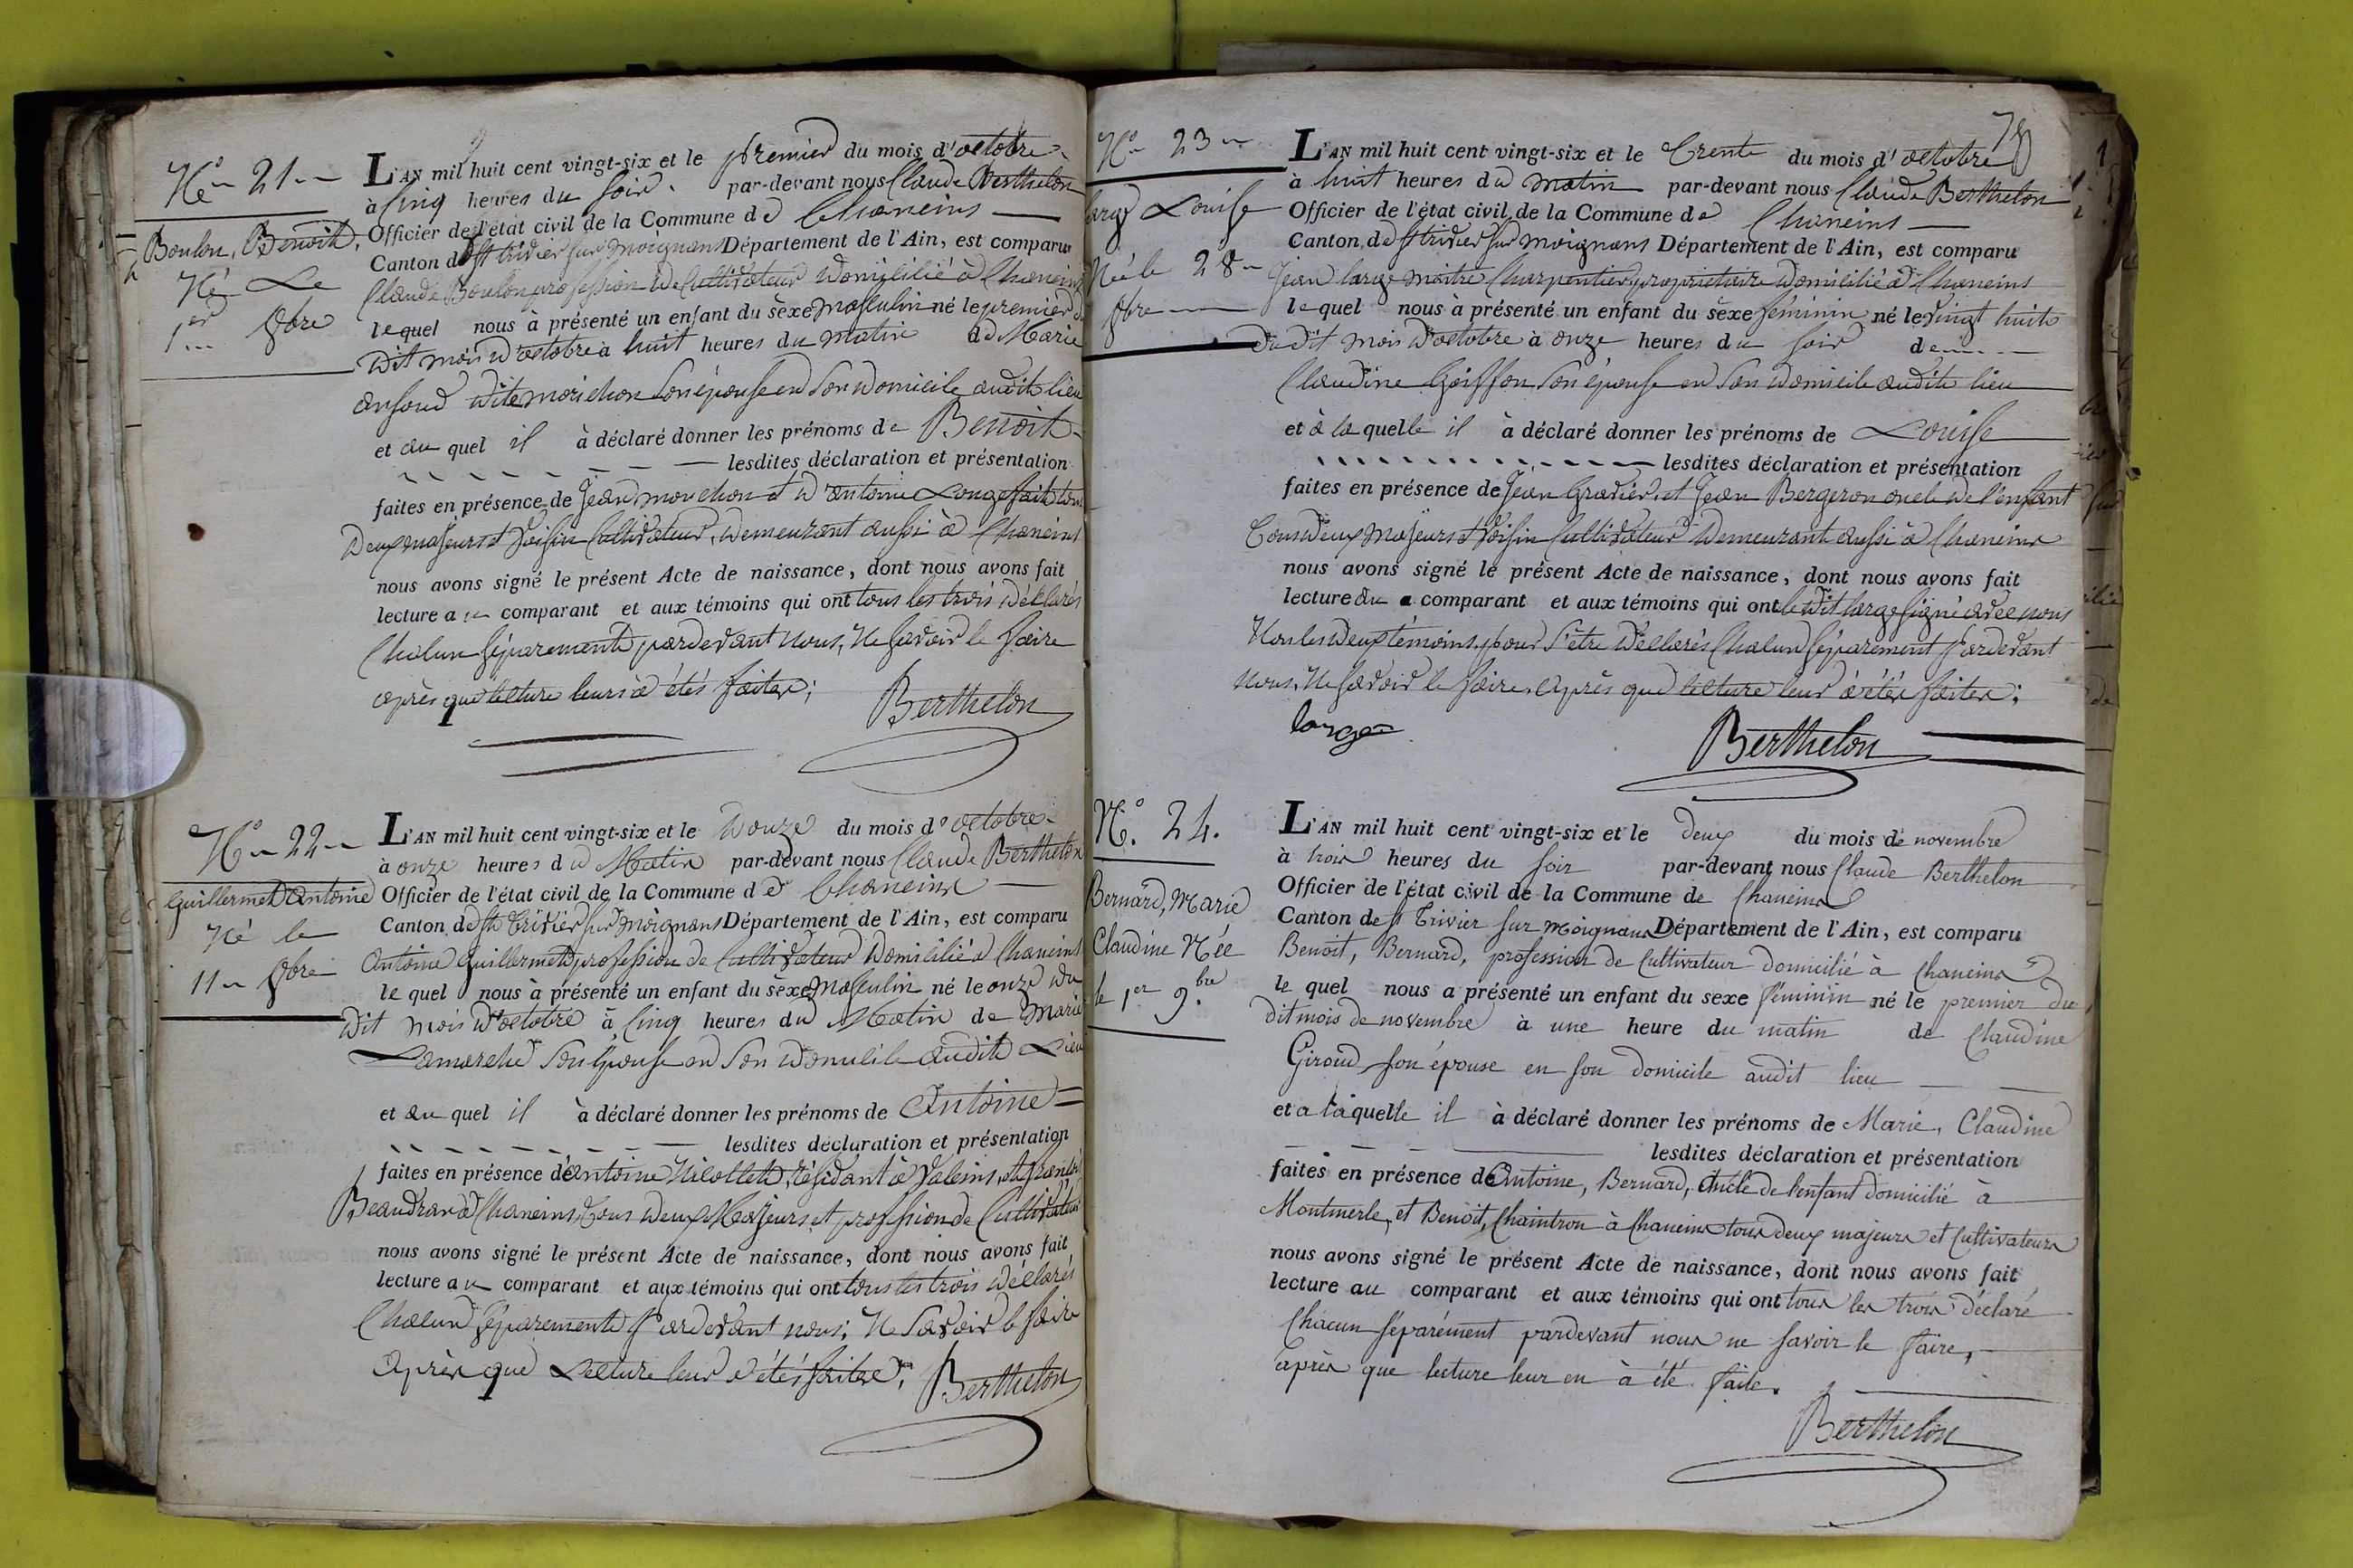 N° 21
Boulon, Benoit,
Né Le
1er 8bre
L'AN mil huit cent vingt-six et le premier du mois d'octobre
à Cinq heures du Soir par-devant nous Claude Berthelon
Officier de l'état civil de la Commune de Chaneins
Canton de St trivier sur moignans Département de l'Ain, est comparu
Claude Boulon profession de Cultivateur domicilié à Chaneins
lequel nous à présenté un enfant du sèxe masculin né le premier du
dit mois d'octobre à huit heures du matin de Marie
dite morichon son épouse en son domicile audit lieu
et au quel il à déclaré donner les prénoms de Benoit
lesdites déclaration et présentation
faites en présence de Jean et d'antoine tous
Deux majeurs et voisin Cultivateur, demeurant aussi à Chaneins
nous avons signé le présent Acte de naissance, dont nous avons fait
lecture au comparant et aux témoins qui ont tous les trois déclarés
Chacun séparement pardevant nous, Ne savoir le faire
après que lecture leurs à étés faites;
Berthelon
N° 22
Guillermet Antoine
Né le
11 8bre
L'AN mil huit cent vingt-six et le Douze du mois d'octobre
à onze heures du Matin par-devant nous Claude Berthelon
Officier de l'état civil de la Commune de Chaneins
Canton de St Trivier sur moignans Département de l'Ain, est comparu
Antoine Guillermet profession de Cultivateur Domicilié à Chaneins
le quel nous à présenté un enfant du sèxe Masculin né le onze du
dit mois d'octobre à Cinq heures du Matin de Marie
Lamarche son épouse en son domicile audit Lieu
et au quel il à déclaré donner les prénoms de Antoine
lesdites déclaration et présentation
faites en présence de antoine Nicollet, résidant à Valeins, et francois
Beaudran à Chaneins, tous deux Majeurs et profession de Cultivateur
nous avons signé le présent Acte de naissance, dont nous avons fait
lecture au comparant et aux témoins qui ont tous les trois déclarés
Chacun séparement Pardevant nous, Ne Savoir le faire
Après que Lecture leur à étés faites;
Berthelon
78
N° 23
large Louise
Née le 28
8bre
L'AN mil huit cent vingt-six et le Trente du mois d'octobre
à huit heures du matin par-devant nous Claude Berthelon
Officier de l'état civil de la Commune de Chaneins
Canton de St trivier sur moignans Département de l'Ain, est comparu
Jean large maitre Charpentier, proprietaire domicilié à Chaneins
le quel nous à présenté un enfant du sèxe féminin né le vingt huit
du dit mois d'octobre à onze heures du soir de
Claudine Goiffon son épouse en son domicile audit lieu
et à la quelle il à déclaré donner les prénoms de Louise
lesdites déclaration et présentation
faites en présence de Jean Gravier, et Jean Bergeron oncle de l'enfant
Tous deux Majeurs et voisin Cultivateur demeurant aussi à Chaneins
nous avons signé le présent Acte de naissance, dont nous avons fait
lecture au comparant et aux témoins qui ont ledit large signé avec nous
Non les deux témoins, pour s'être déclarés Chacun séparement Pardevant
nous, Ne savoir le faire, après que lecture leur à étés faites;
large
Berthelon
N°. 24.
Bernard, Marie
Claudine Née
le 1er 9.bre
L'AN mil huit cent vingt-six et le deux du mois de novembre
à trois heures du soir par-devant nous Claude Berthelon
Officier de l'état civil de la Commune de Chaneins
Canton de St Trivier sur moignans Département de l'Ain, est comparu
Benoit, Bernard, profession de Cultivateur domicilié à Chaneins
le quel nous a présenté un enfant du sexe féminin né le premier du
dit mois de novembre à une heure du matin de Claudine
Giroud son épouse en son domicile audit lieu
et a laquelle il à déclaré donner les prénoms de Marie, Claudine
lesdites déclaration et présentation
faites en présence de Antoine, Bernard, Oncle de l'enfant domicilié à
Montmerle, et Benoit, Chaintron à Chaneins tous deux majeurs et Cultivateurs
nous avons signé le présent Acte de naissance, dont nous avons fait
lecture au comparant et aux témoins qui ont tous les trois déclaré
Chacun séparément pardevant nous ne savoir le faire,
après que lecture leur en à été faite.
Berthelon